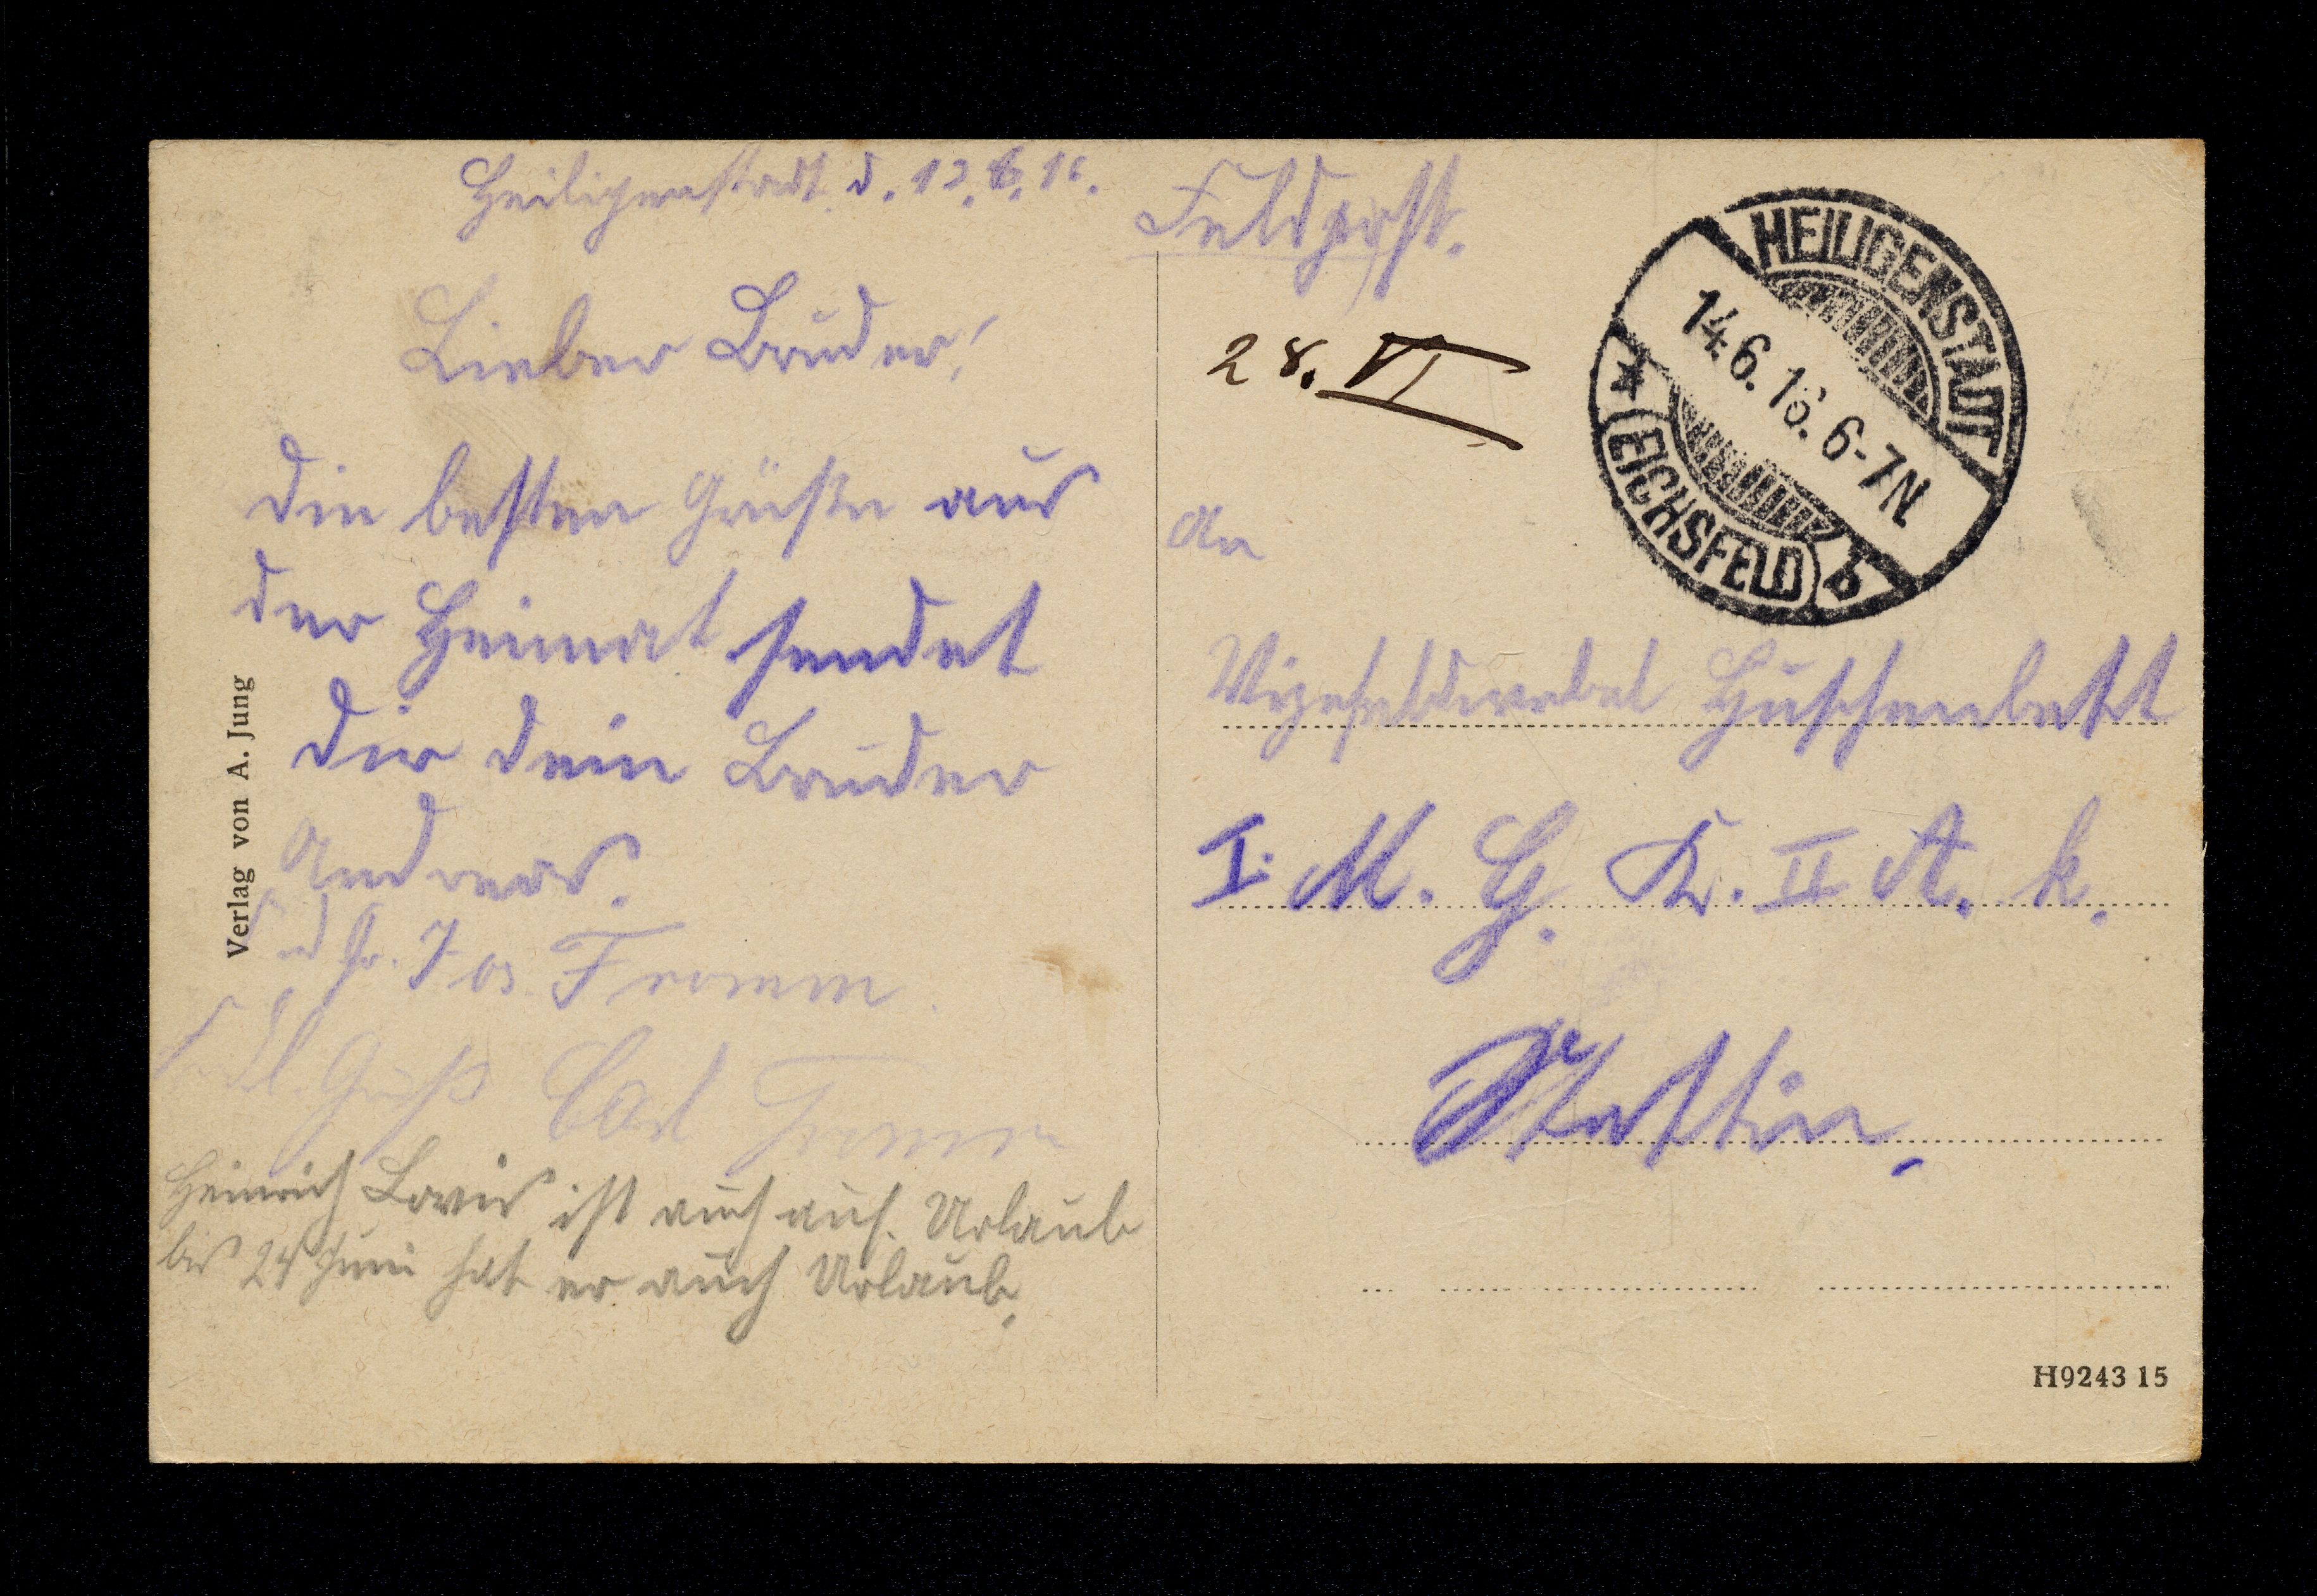 Heiligenstadt d. 13.6.16.
Lieber Bruder!
Die besten Grüße aus
der Heimat sendet
dir dein Bruder
Andreas.
Jos. Fromm
Gruß Carl Fromm
Heinrich Lovis ist auch auf Urlaub
bis 24 Juni hat er auch Urlaub.
Verlag von A. Jung
Feldpost.
28. VI
HEILIGENSTADT
14.6.16. 6-7N.
* EICHSFELD b
An
Vizefeldwebel Huschenbett
I. M. G. K. II A. k.
Stettin.
H9243 15